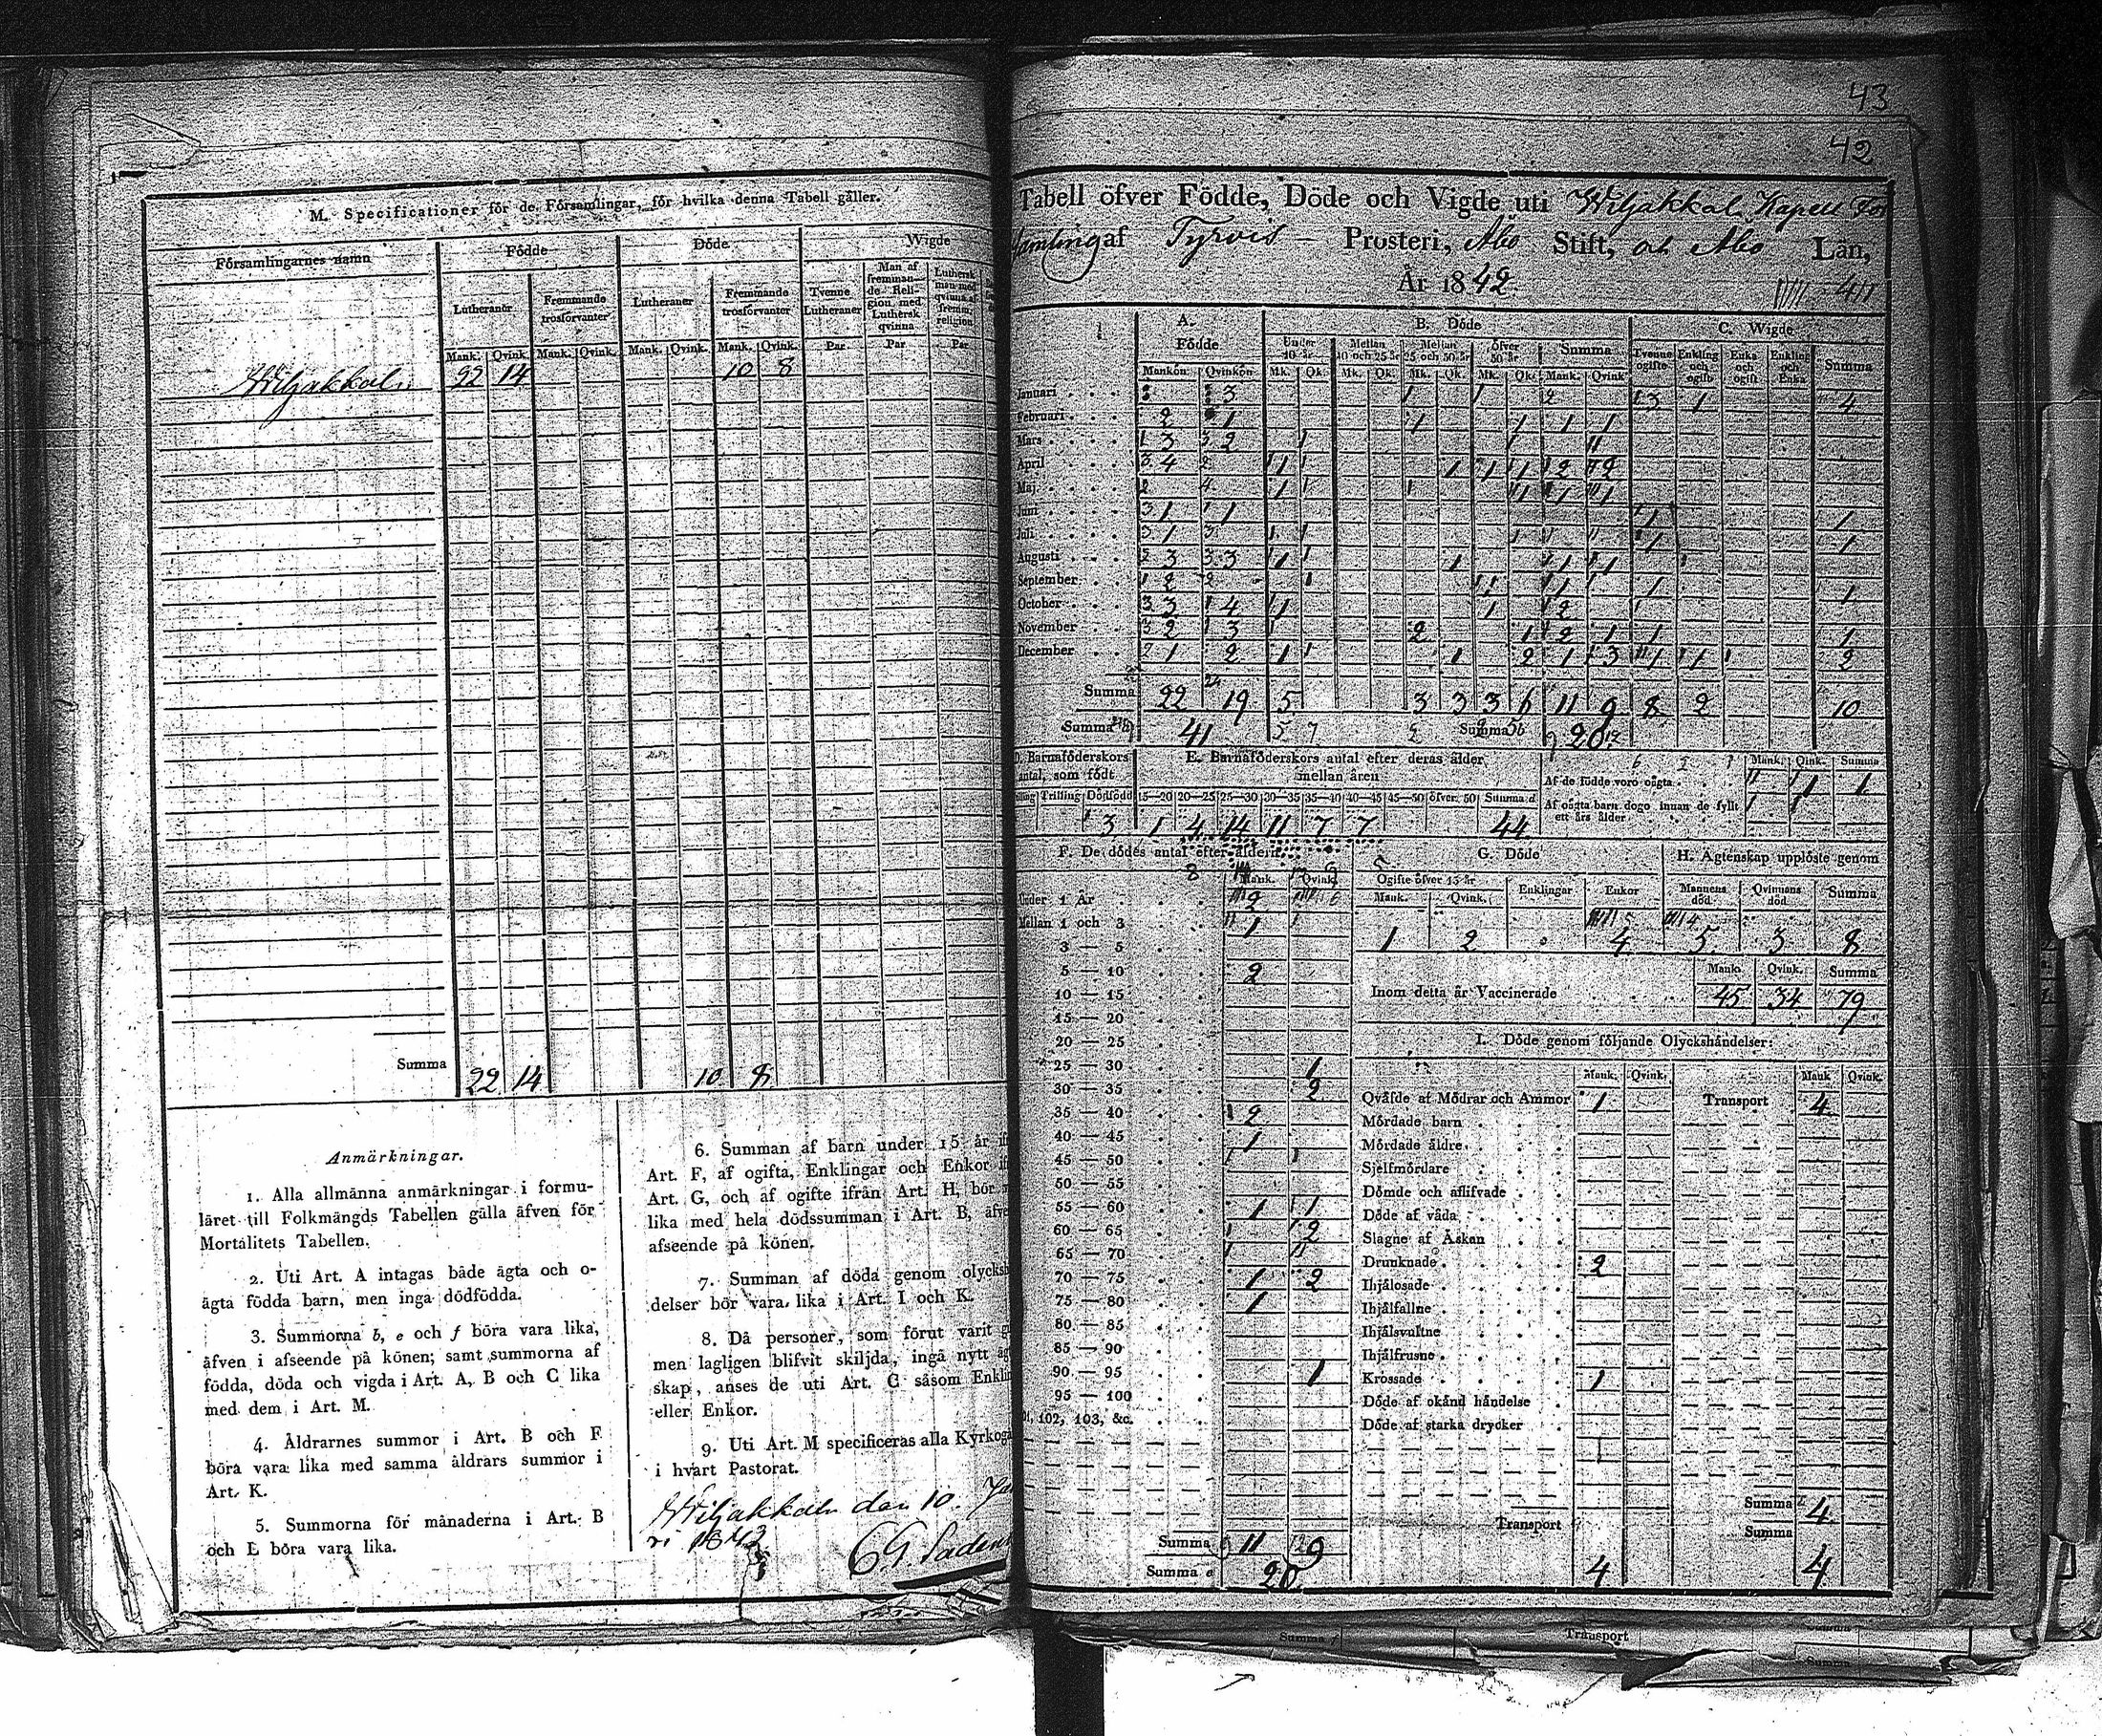 M. Specificationer för de Församlingar, för hvilka denna Tabell gäller.
Församlingarnes namn Födde Döde Wigde
Lutheraner Fremmande trosförvanter Lutheraner Fremmande trosförvanter Tvenne Lutheraner Man af fremmande Religion med Luthersk qvinna Luthersk man med qvinna af fremm. religion
Mank. Qvink. Mank. Qvink. Mank. Qvink. Mank. Qvink. Par Par Par
Wiljakkala 22 14 10 8
Summa 22 14 10 8
Anmärkningar.
1. Alla allmänna anmärkningar i formu-
läret till Folkmängds Tabellen gälla äfven för
Mortalitets Tabellen.
2. Uti Art. A intagas både ägta och o-
ägta födda barn, men inga dödfödda.
3. Summorna b, e och f böra vara lika,
äfven i afseende på könen; samt summorna af
födda, döda och vigda i Art. A, B och C lika
med dem i Art. M.
4. Åldrarnes summor i Art. B och F
böra vara lika med samma åldrars summor i
Art. K.
5. Summorna för månaderna i Art. B
och L böra vara lika.
6. Summan af barn under 15 år
Art. F, af ogifta, Enklingar och Enkor
Art. G, och af ogifte ifrån Art. H, bör
lika med hela dödssumman i Art. B,
afseende på könen.
7. Summan af döda genom
delser bör vara lika i Art. I och K.
8. Då personer, som förut varit
men lagligen blifvit skiljda, ingå nytt
skap, anses de uti Art. G såsom
eller Enkor.
9. Uti Art. M specificeras alla
i hvart Pastorat.
Wiljakkala den 10.
ri 1843
43
42
Tabell öfver Födde, Döde och Vigde uti Wiljakkala Kapell För
samling af Tyrvis Prosteri, Åbo Stift, och Åbo Län,
År 1842
A. Födde B. Döde C. Wigde
Under 10 år Mellan 10 och 25 år Mellan 25 och 50 år Öfver 50 år Summa Tvenne ogifte Enkling och ogift Enka och ogift Enkling och Enka Summa
Mankön Qvinkön Mk. Qk. Mk. Qk. Mk. Qk. Mk. Qk. Mank. Qvink.
Januari 3 3 1 4
Februari 2 1 1 1 1 1
Mars 3 2
April 4 1 1 1 1 2 2
Maj 1 1 1 1
Juni 1 1 1 1
Juli 1 1 1
Augusti 3 3 1 1 1 1
September 2 1 1 1
October 3 4 1 1 2
November 2 3 2 1 2 1 1 1
December 1 2 1 1 2 1 3 1 1 2
Summa 22 19 5 3 3 3 6 11 9 8 2 10
Summa 41 Summa b 20
D. Barnaföderskors antal, som födt E. Barnaföderskors antal efter deras ålder, mellan åren
Trilling Dödfödd 15—20 20—25 25—30 30—35 35—40 40—45 45—50 öfver 50 Summa d
3 1 4 14 11 7 7 44
Mank. Qvink. Summa
Af de födde voro oägta 1 1
Af oägta barn dogo innan de fyllt ett års ålder
F. De dödes antal efter åldern
Mank. Qvink.
Under 1 År 2
Mellan 1 och 3 1
3 — 5
5 — 10 2
10 — 15
15 — 20
20 — 25
25 — 30 1
30 — 35 2
35 — 40 2
40 — 45 1
45 — 50
50 — 55
55 — 60 1 1
60 — 65 2
65 — 70
70 — 75 1 2
75 — 80 1
80 — 85
85 — 90
90 — 95 1
95 — 100
102, 103, &c.
Summa 11 9
Summa e 20
G. Döde
Ogifte öfver 15 år Enklingar Enkor
Mank. Qvink.
1 2 4
H. Ägtenskap upplöste genom
Mannens död Qvinnans död Summa
5 3 8
Mank. Qvink. Summa
Inom detta år Vaccinerade 45 34 79
I. Döde genom följande Olyckshändelser:
Mank. Qvink. Mank. Qvink.
Qväfde af Mödrar och Ammor 1 Transport 4
Mördade barn
Mördade äldre
Sjelfmördare
Dömde och aflifvade
Döde af våda
Slagne af Åskan
Drunknade 2
Ihjälosade
Ihjälfallne
Ihjälsvultne
Ihjälfrusne
Krossade 1
Döde af okänd händelse
Döde af starka drycker
Summa 4
Transport 4 Summa 4
Transport
Summa